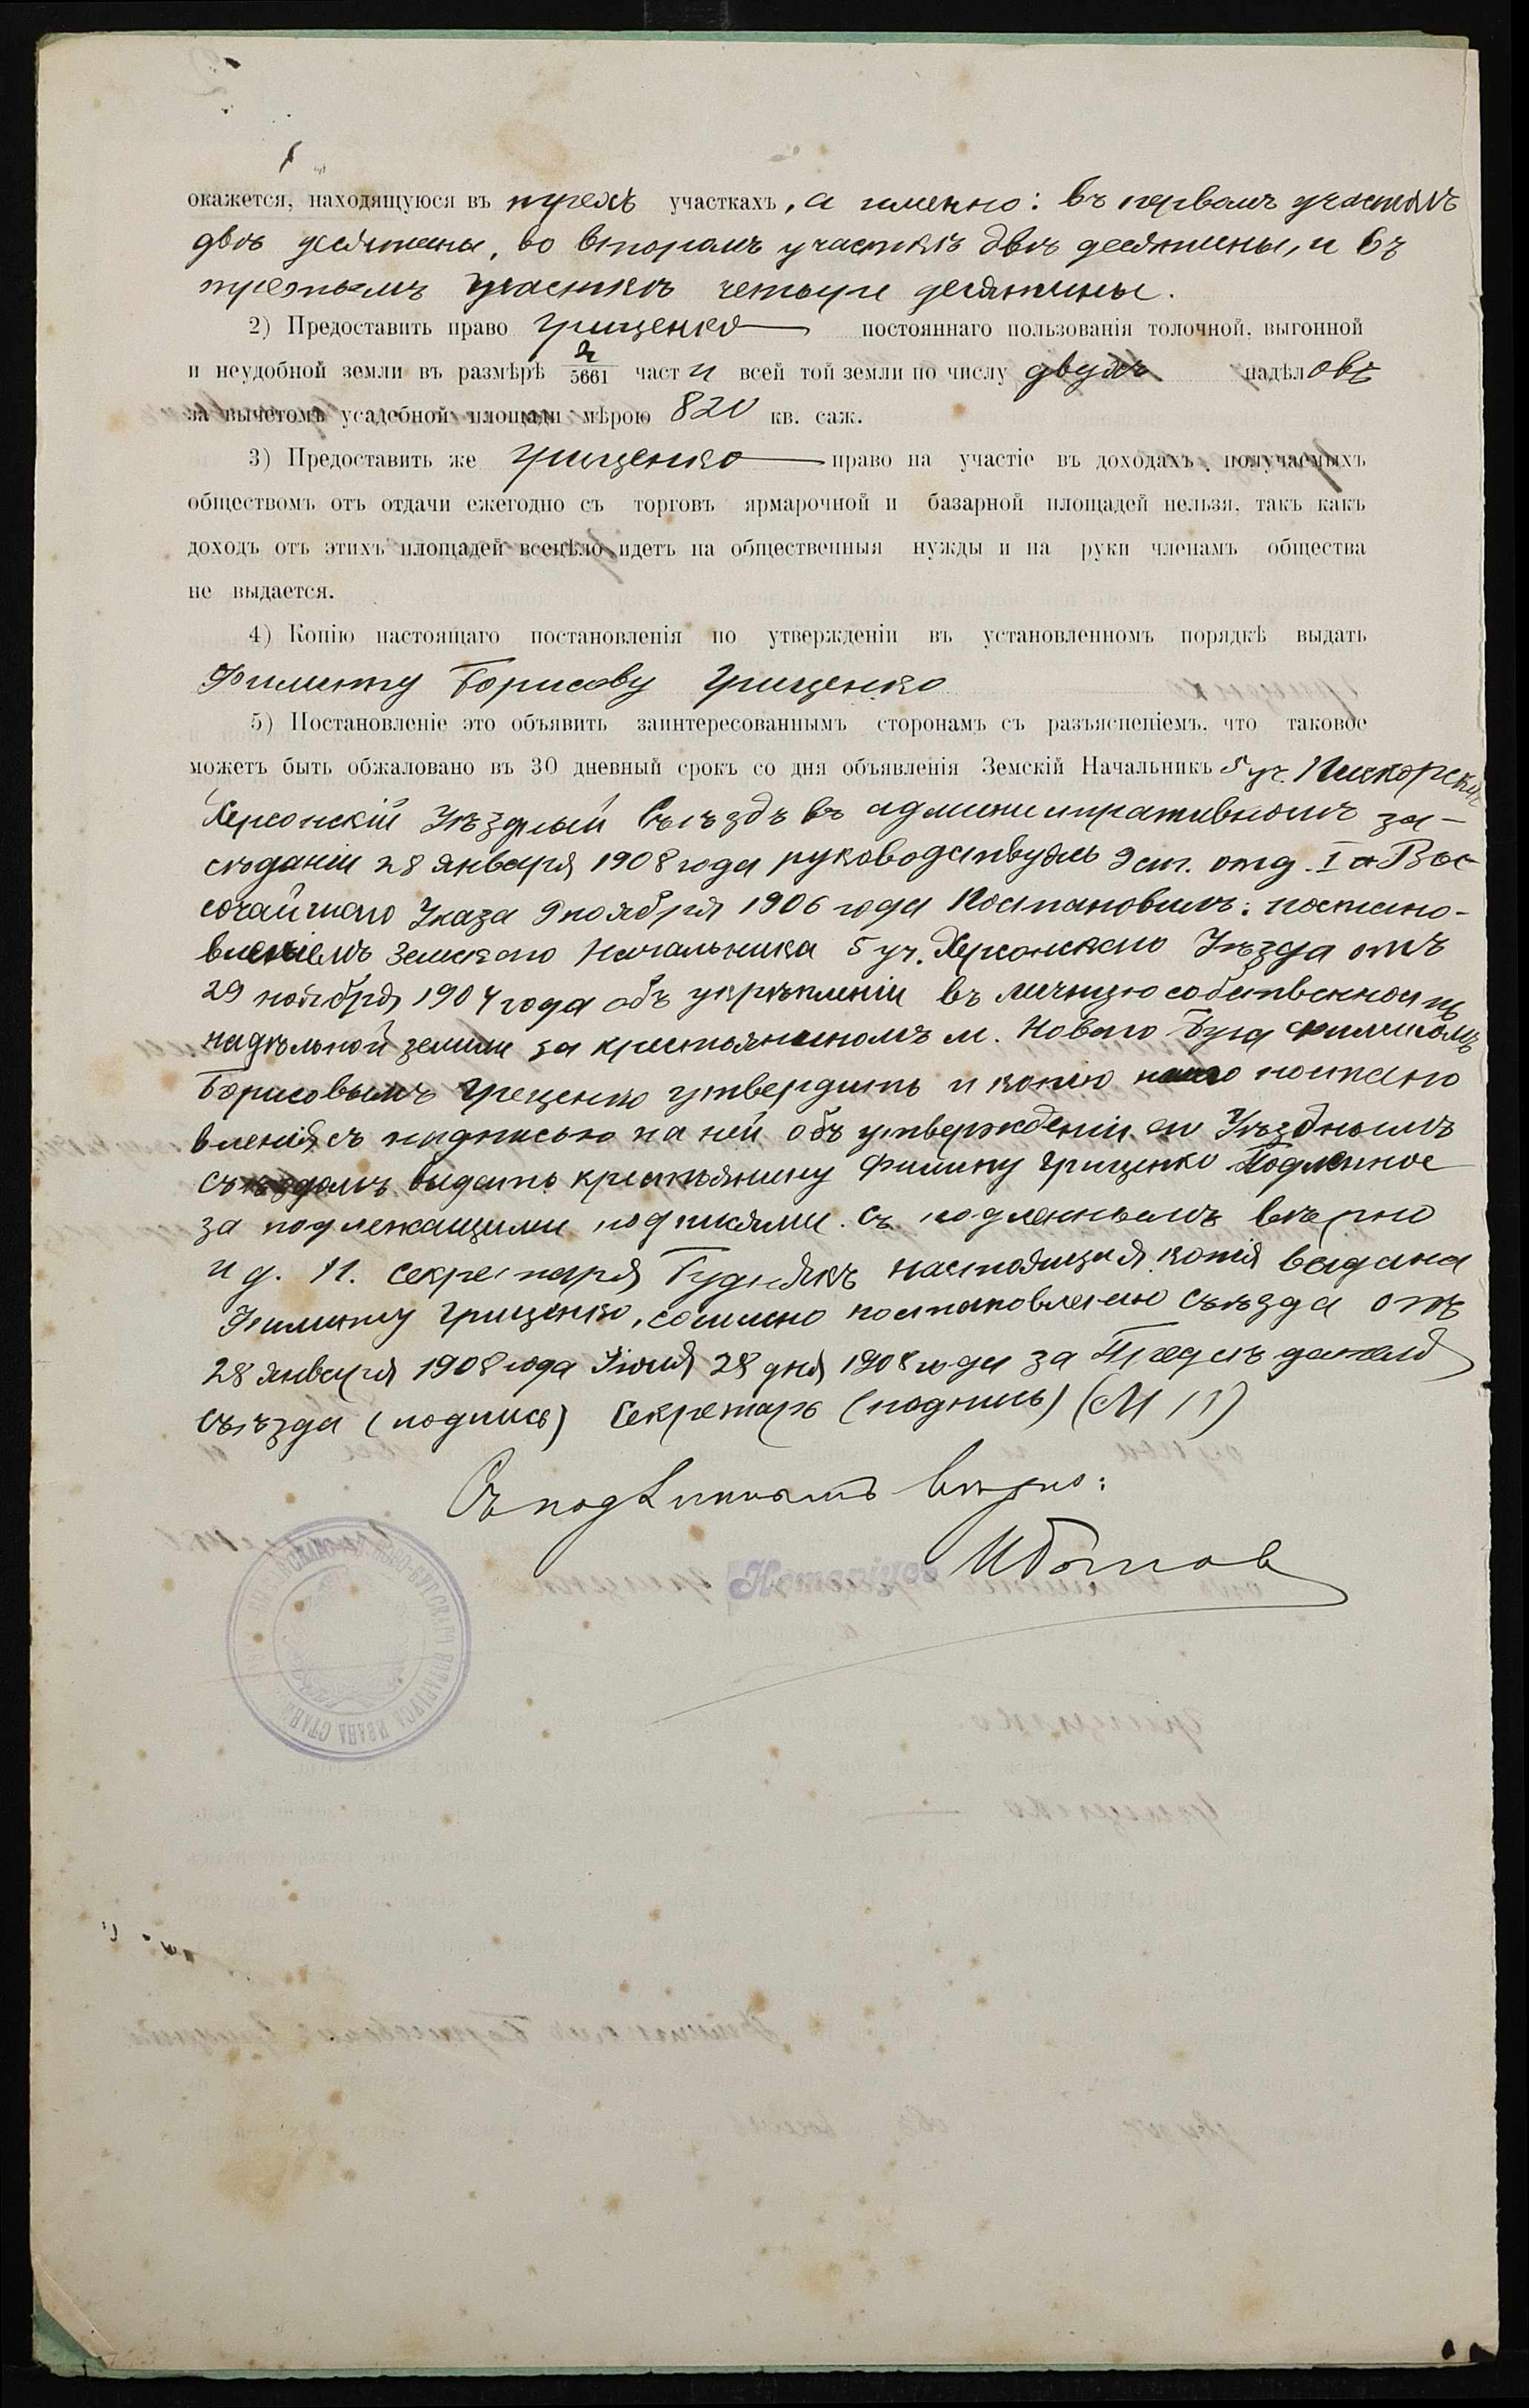 окажется, находящуюся въ трехъ участкахъ, а именно: въ первомъ участкѣ
двѣ десятины, во второмъ участкѣ двѣ десятины, и въ
третьемъ участкѣ четыре десятины.
2) Предоставить право Грищенко постояннаго пользованія толочной, выгонной
и неудобной земли въ размѣрѣ 2/5661 части всей той земли по числу двухъ надѣловъ
за вычетомъ усадебной площади мѣрою 820 кв. саж.
3) Предоставить же Грищенко право на участіе въ доходахъ, получаемыхъ
обществомъ отъ отдачи ежегодно съ торговъ ярмарочной и базарной площадей нельзя, такъ какъ
доходъ отъ этихъ площадей всецѣло идетъ на общественныя нужды и на руки членамъ общества
не выдается.
4) Копію настоящаго постановленія по утвержденіи въ установленномъ порядкѣ выдать
Филиппу Борисову Грищенко
5) Постановленіе это объявить заинтересованнымъ сторонамъ съ разъясненіемъ, что таковое
можетъ быть обжаловано въ 30 дневный срокъ со дня объявленія Земскій Начальникъ 5 уч.
Херсонскій Уѣздный Съѣздъ въ административномъ за-
сѣданіи 28 января 1908 года руководствуясь 9 ст. отд. I Вы-
сочайшаго Указа 9 ноября 1906 года Постановилъ: постано-
вленіемъ Земскаго Начальника 5 уч. Херсонскаго Уѣзда отъ
29 ноября 1907 года объ укрѣпленіи въ личную собственность
надѣльной земли за крестьяниномъ м. Новаго Буга Филиппомъ
Борисовымъ Грищенко утвердить и копію постано
вленія съ надписью на ней объ утвержденіи его Уѣзднымъ
Съѣздомъ выдать крестьянину Филиппу Грищенко Подлинное
за подлежащими подписями. Съ подлиннымъ вѣрно
и д. Секретаря Гудзякъ настоящая копія выдана
Филиппу Грищенко, согласно постановленію съѣзда отъ
28 января 1908 года Іюня 28 дня 1908 года за Предсѣдателя
Съѣзда (подпись) Секретарь (подпись) (М П)
Съ подлиннымъ вѣрно:
Нотаріусъ